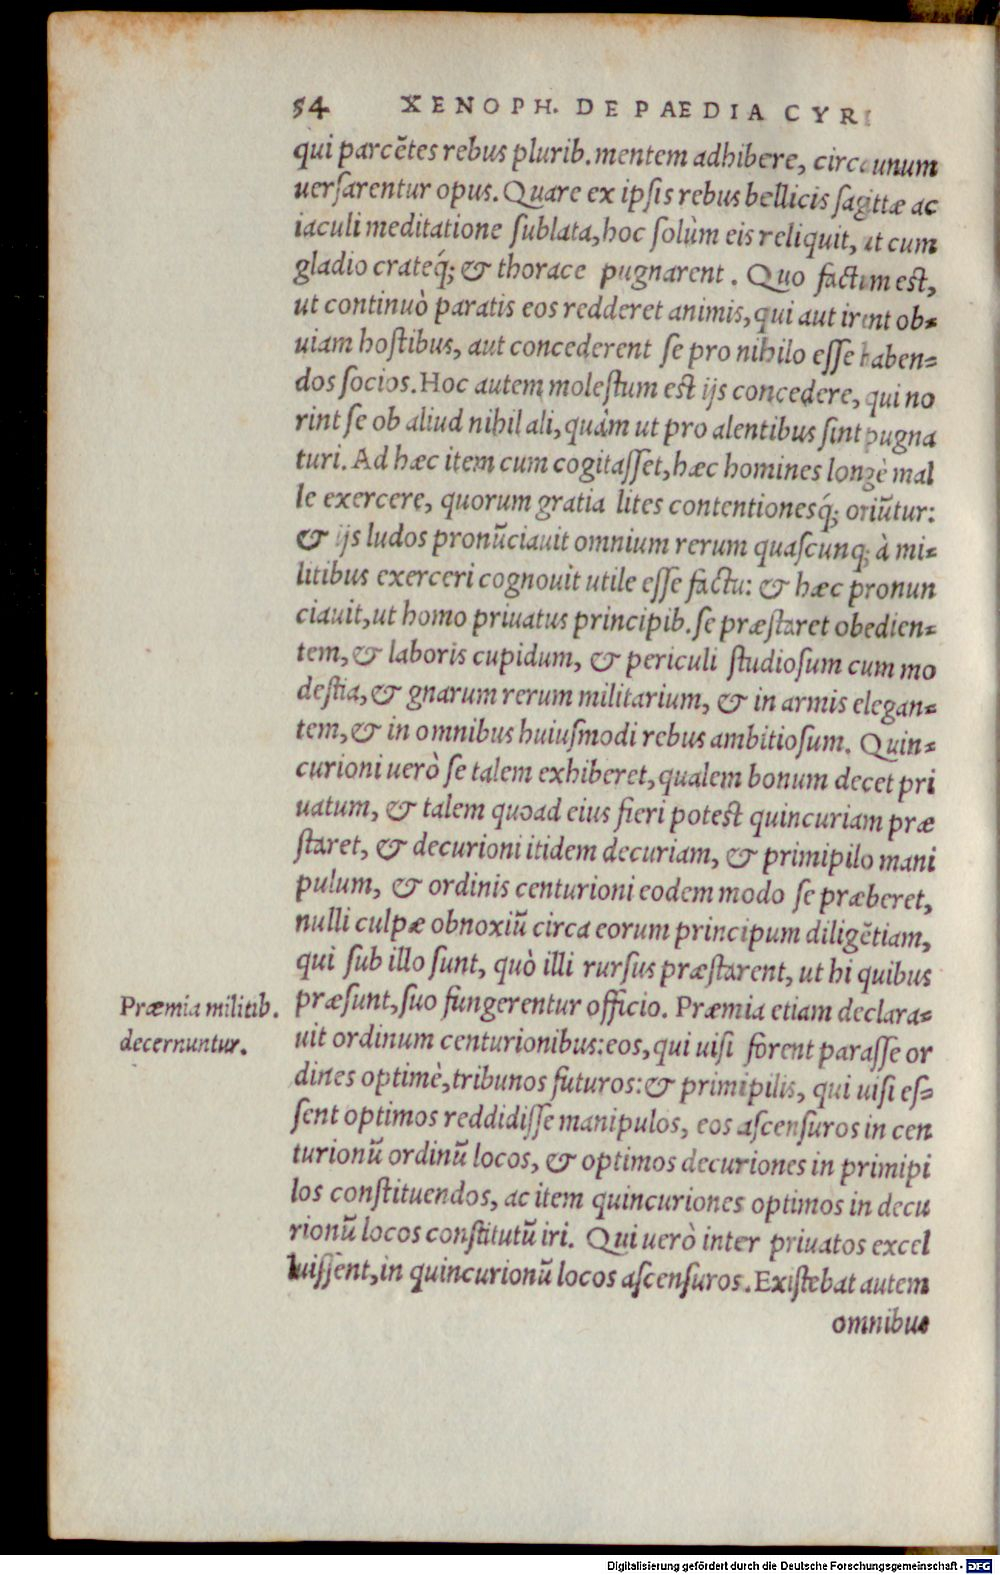 54 XENOPH. DE PAEDIA CYRI
qui parcẽtes rebus plurib. mentem adhibere, circa unum
uersarentur opus. Quare ex ipsis rebus bellicis sagittæ ac
iaculi meditatione sublata, hoc solùm eis reliquit, ut cum
gladio crateq́; & thorace pugnarent. Quo factum est,
ut continuò paratis eos redderet animis, qui aut irent ob-
uiam hostibus, aut concederent se pro nihilo esse haben-
dos socios. Hoc autem molestum est ijs concedere, qui no
rint se ob aliud nihil ali, quàm ut pro alentibus sint pugna
turi. Ad hæc item cum cogitasset, hæc homines longè mal
le exercere, quorum gratia lites contentionesq́; oriũtur:
& ijs ludos pronũciauit omnium rerum quascunq; à mi-
litibus exerceri cognouit utile esse factu: & hæc pronun
ciauit, ut homo priuatus principib. se præstaret obedien-
tem, & laboris cupidum, & periculi studiosum cum mo
destia, & gnarum rerum militarium, & in armis elegan-
tem, & in omnibus huiusmodi rebus ambitiosum. Quin-
curioni uerò se talem exhiberet, qualem bonum decet pri
uatum, & talem quoad eius fieri potest quincuriam præ
staret, & decurioni itidem decuriam, & primipilo mani
pulum, & ordinis centurioni eodem modo se præberet,
nulli culpæ obnoxiũ circa eorum principum diligẽtiam,
qui sub illo sunt, quò illi rursus præstarent, ut hi quibus
Præmia militib.
decernuntur.
præsunt, suo fungerentur officio. Præmia etiam declara-
uit ordinum centurionibus: eos, qui uisi forent parasse or
dines optimè, tribunos futuros: & primipilis, qui uisi es-
sent optimos reddidisse manipulos, eos ascensuros in cen
turionũ ordinũ locos, & optimos decuriones in primipi
los constituendos, ac item quincuriones optimos in decu
rionũ locos constitutũ iri. Qui uerò inter priuatos excel
luissent, in quincurionũ locos ascensuros. Existebat autem
omnibus
Digitalisierung gefördert durch die Deutsche Forschungsgemeinschaft - DFG